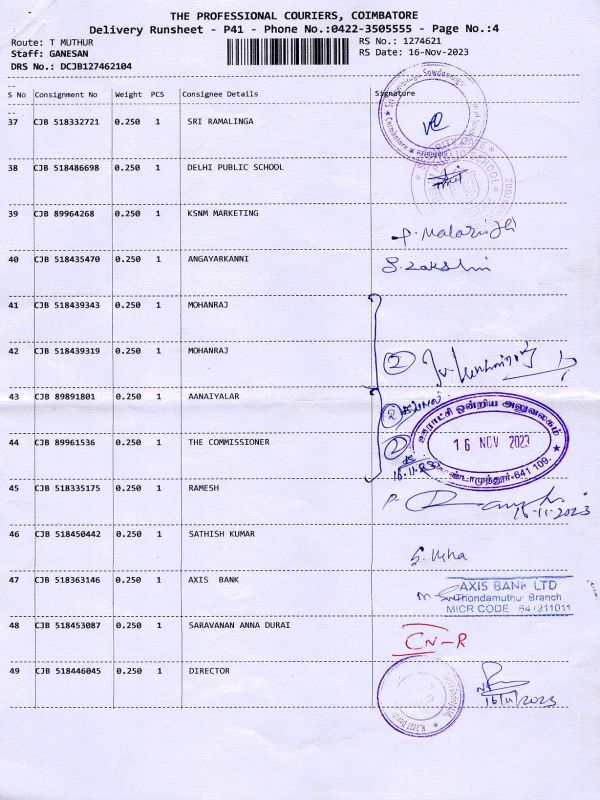 THE PROFESSIONAL COURIERS, COIMBATORE
Delivery Runsheet - P41 - Phone No.:0422-3505555 - Page No.:4
Route: T MUTHUR RS No.: 1274621
Staff: GANESAN RS Date: 16-Nov-2023
DRS No.: DCJB127462104
S No Consignment No Weight PCS Consignee Details Signature
37 CJB 518332721 0.250 1 SRI RAMALINGA
38 CJB 518486698 0.250 1 DELHI PUBLIC SCHOOL
39 CJB 89964268 0.250 1 KSNM MARKETING
40 CJB 518435470 0.250 1 ANGAYARKANNI
41 CJB 518439343 0.250 1 MOHANRAJ
42 CJB 518439319 0.250 1 MOHANRAJ
2
43 CJB 89891801 0.250 1 AANAIYALAR
2
ஊராட்சி ஒன்றிய அலுவலகம்
16 NOV 2023
44 CJB 89961536 0.250 1 THE COMMISSIONER
641 109.
45 CJB 518335175 0.250 1 RAMESH
16-11-2023
46 CJB 518450442 0.250 1 SATHISH KUMAR
S. Usha
47 CJB 518363146 0.250 1 AXIS BANK
AXIS BANK LTD
Thondamuthur Branch
MICR CODE 641211011
48 CJB 518453087 0.250 1 SARAVANAN ANNA DURAI CN-R
49 CJB 518446045 0.250 1 DIRECTOR
16/11/2023